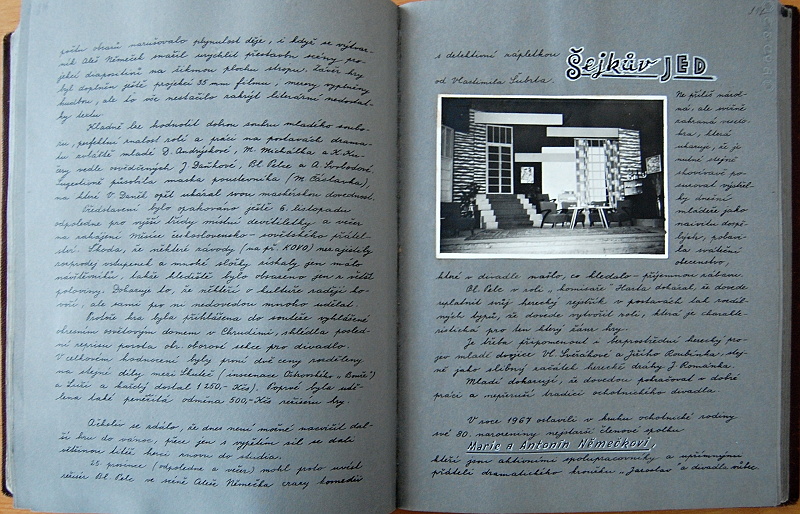 počtu obrazů narušovalo plynulost děje, i když se výtvar-
ník Aleš Němeček snažil urychlit přestavbu scény pro-
jekcí diapositivů na šikmou plochu stropu. Závěr hry
byl doplněn ještě projekcí 35 mm filmu, mezery vyplněny
hudbou, ale to vše nestačilo zakrýt literární nedostat-
ky textu.
Kladně lze hodnotit dobrou souhru mladého soubo-
ru, perfektní znalost rolí a práci na postavách drama-
tu zvláště mladé D. Andrýskové, M. Michálka a K. Ku-
vedle osvědčených J. Dačkové, Bl. Pelce a A. Svobodové
sugestivně působila maska poustevníka (M. Částavka),
na které V. Daněk opět ukázal svou maskérskou dovednost.
Představení bylo opakováno ještě 6. listopadu
odpoledne pro vyšší třídy místní devítiletky a večer
na zahájení Měsíce československo-sovětského přátel-
ství. Škoda, že některé závody (na př. KOVO) nezajistily
rozprodej vstupenek a mnohé složky získaly jen málo
návštěvníků, takže hlediště bylo obsazeno jen z větší
poloviny. Dokazuje to, že někteří o kultuře raději ho-
voří, ale sami pro ni nedovedou mnoho udělat.
Protože hra byla přihlášena do soutěže vyhlášené
okresním osvětovým domem v Chrudimi, shlédla posled-
ní reprisu porota obl. odborové sekce pro divadlo.
V celkovém hodnocení byly první dvě ceny rozděleny
na stejné díly mezi Skuteč (inscenace Ostrovského „Bouře")
a Luži a každý dostal 1 250,- Kčs. Poprvé byla udě-
lena také peněžitá odměna 500,- Kčs režiséru hry.
Ačkoliv se zdálo, že dnes není možné nacvičit dal-
ší hru do vánoc, přece jen s vypětím sil se dali
většinou titíž herci znovu do studia.
25. prosince (odpoledne a večer) mohl proto uvést
režisér Bl. Pelc ve scéně Aleše Němečka crazy komedii
s detektivní zápletkou Šejkův JED
od Vlastimila Šubrta.
Ne příliš nároč-
ná, ale svižně
zahraná veselo-
hra, která
ukazuje, že je
nutné stejně
shovívavě po-
suzovat výstřel-
ky dnešní
mládeže jako
naivitu dospě-
lých, pobavi-
la sváteční
obecenstvo,
které v divadle našlo, co hledalo - příjemnou zábavu.
Bl. Pelc v roli „komisaře" Harta dokázal, že dovede
uplatnit svůj herecký rejstřík v postavách tak rozdíl-
ných typů, že dovede vytvořit roli, která je charakte-
ristická pro ten který žánr hry.
Je třeba připomenout i bezprostřední herecký pro-
jev mladé dvojice Vl. Svěrákové a Jiřího Roubínka, stej-
ně jako slibný začátek herecké dráhy J. Románka.
Mladí dokazují, že dovedou pokračovat v dobré
práci a nepřeruší tradici ochotnického divadla.
V roce 1967 oslavili v kruhu ochotnické rodiny
své 80. narozeniny nejstarší členové spolku
Marie a Antonín Němečkovi,
kteří jsou aktivními spolupracovníky a upřímnými
přáteli dramatického kroužku „Jaroslav" a divadla vůbec.